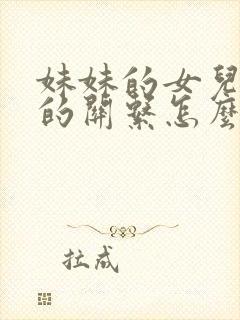 妹妹的女兒
的關繫怎麼
拉成